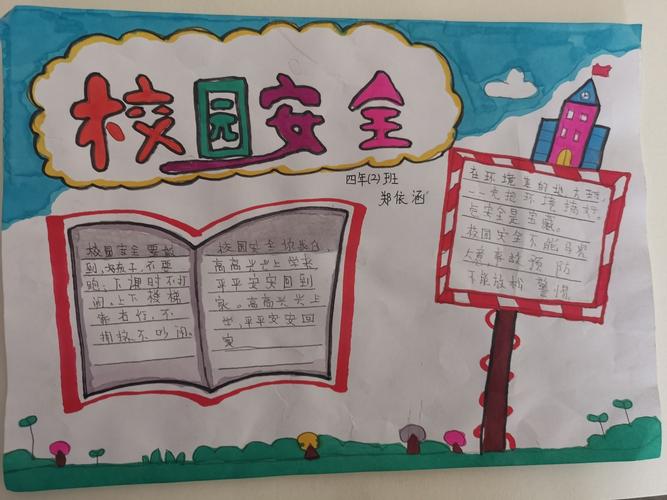 校园安全
四年(2)班
郑依涵
校园安全要做
到,好孩子,不要
跑,下课时不打
闹,上下楼梯
靠右行,不
拥挤,不吵闹。
校园安全你我他,
高高兴兴上学来
平平安安回到
家。高高兴兴上
学,平平安安回
家
在环境里的
安全是宝藏。
校园安全不能
大意事故预防
不能放松警惕